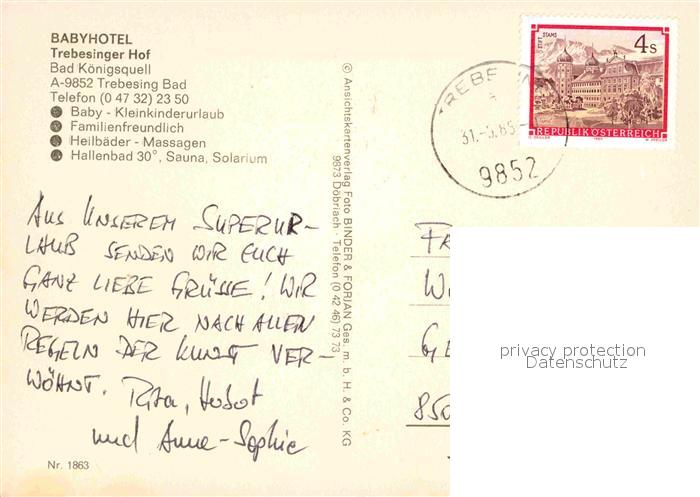 BABYHOTEL
Trebesinger Hof
Bad Königsquell
A-9852 Trebesing Bad
Telefon (0 47 32) 23 50
Baby - Kleinkinderurlaub
Familienfreundlich
Heilbäder - Massagen
Hallenbad 30°, Sauna, Solarium
AUS UNSEREM SUPERUR-
LAUB SENDEN WIR EUCH
GANZ LIEBE GRÜSSE! WIR
WERDEN HIER NACH ALLEN
REGELN DER KUNST VER-
WÖHNT. Rita,
und Anne-Sophie
Nr. 1863
© Ansichtskartenverlag Foto BINDER & FORJAN Ges. m. b. H. & Co. KG
9873 Döbriach · Telefon (0 42 46) 73 73
9852
STIFT STAMS
4s
REPUBLIK ÖSTERREICH
privacy protection
Datenschutz